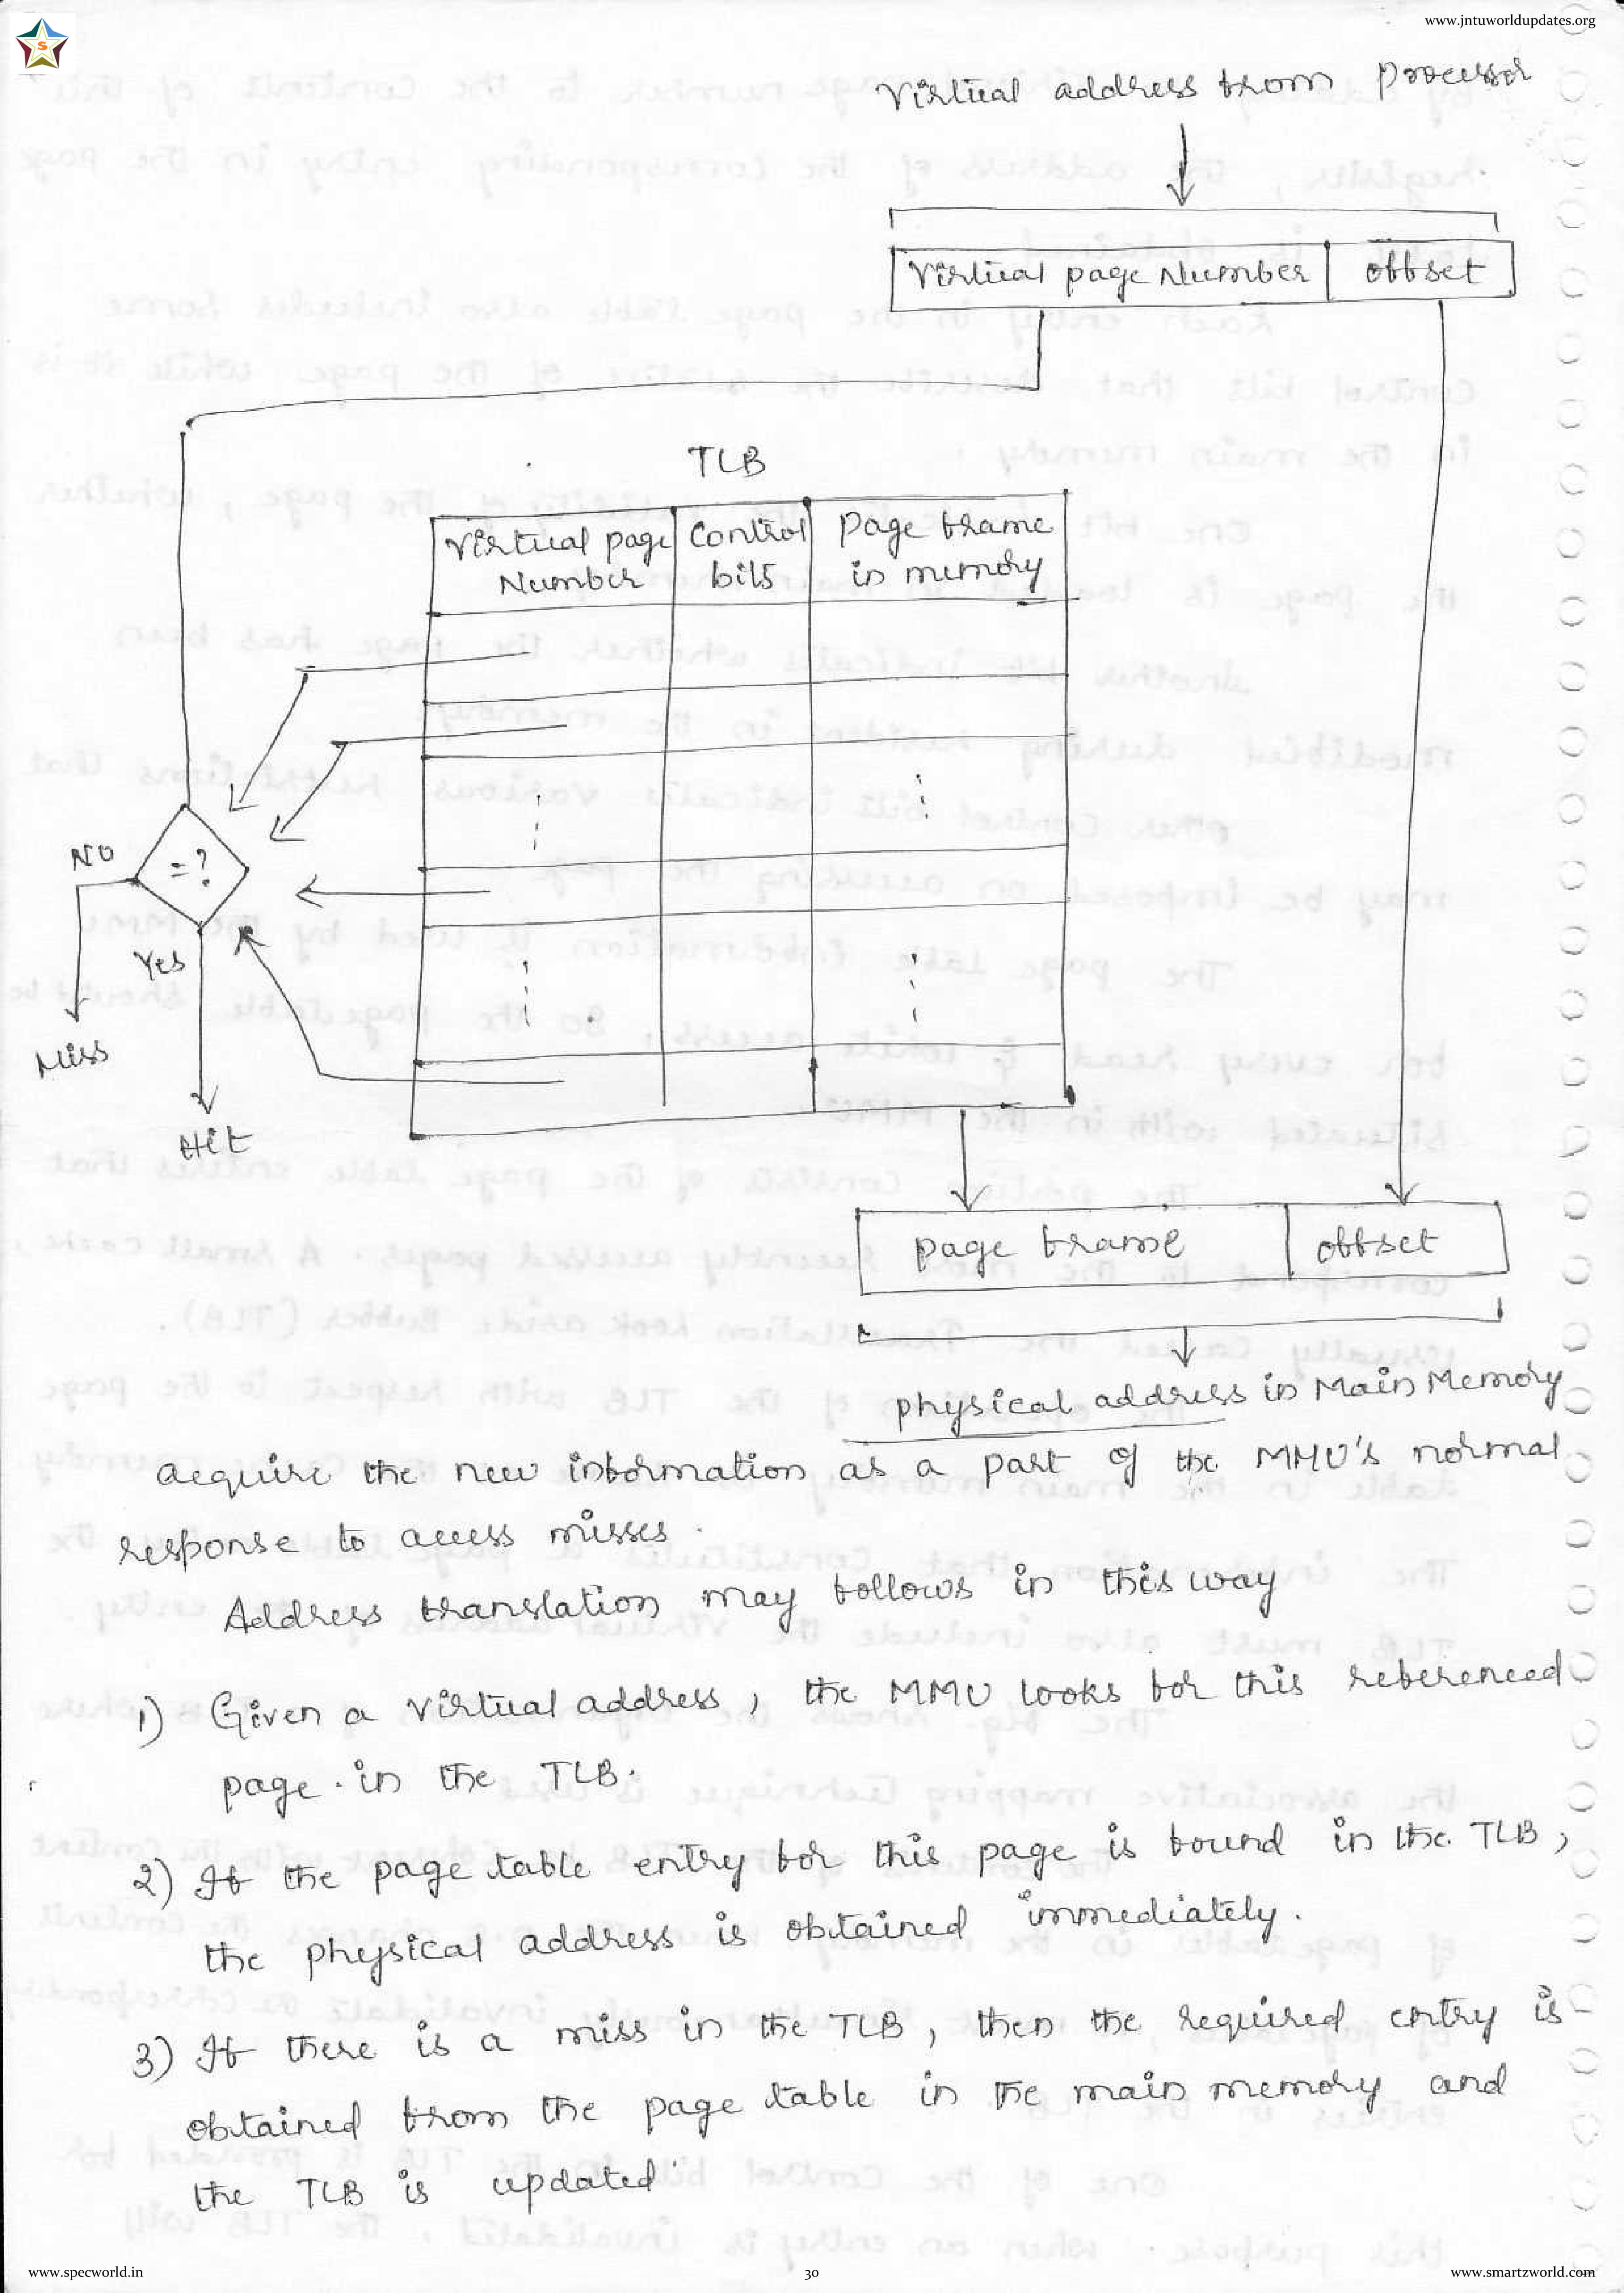 www.jntuworldupdates.org
S
Virtual address from processor
Virtual page Number offset
TLB
Virtual page Control page frame
Number bits in memory
NO =?
Yes
Miss
Hit
page frame offset
physical address in Main Memory
acquire the new information as a part of the MMU's normal
response to access misses.
Address translation may follows in this way
1) Given a virtual address, the MMU looks for this referenced
page in the TLB.
2) If the page table entry for this page is found in the TLB,
the physical address is obtained immediately.
3) If there is a miss in the TLB, then the required entry is
obtained from the page table in the main memory and
the TLB is updated
www.specworld.in 30 www.smartzworld.com